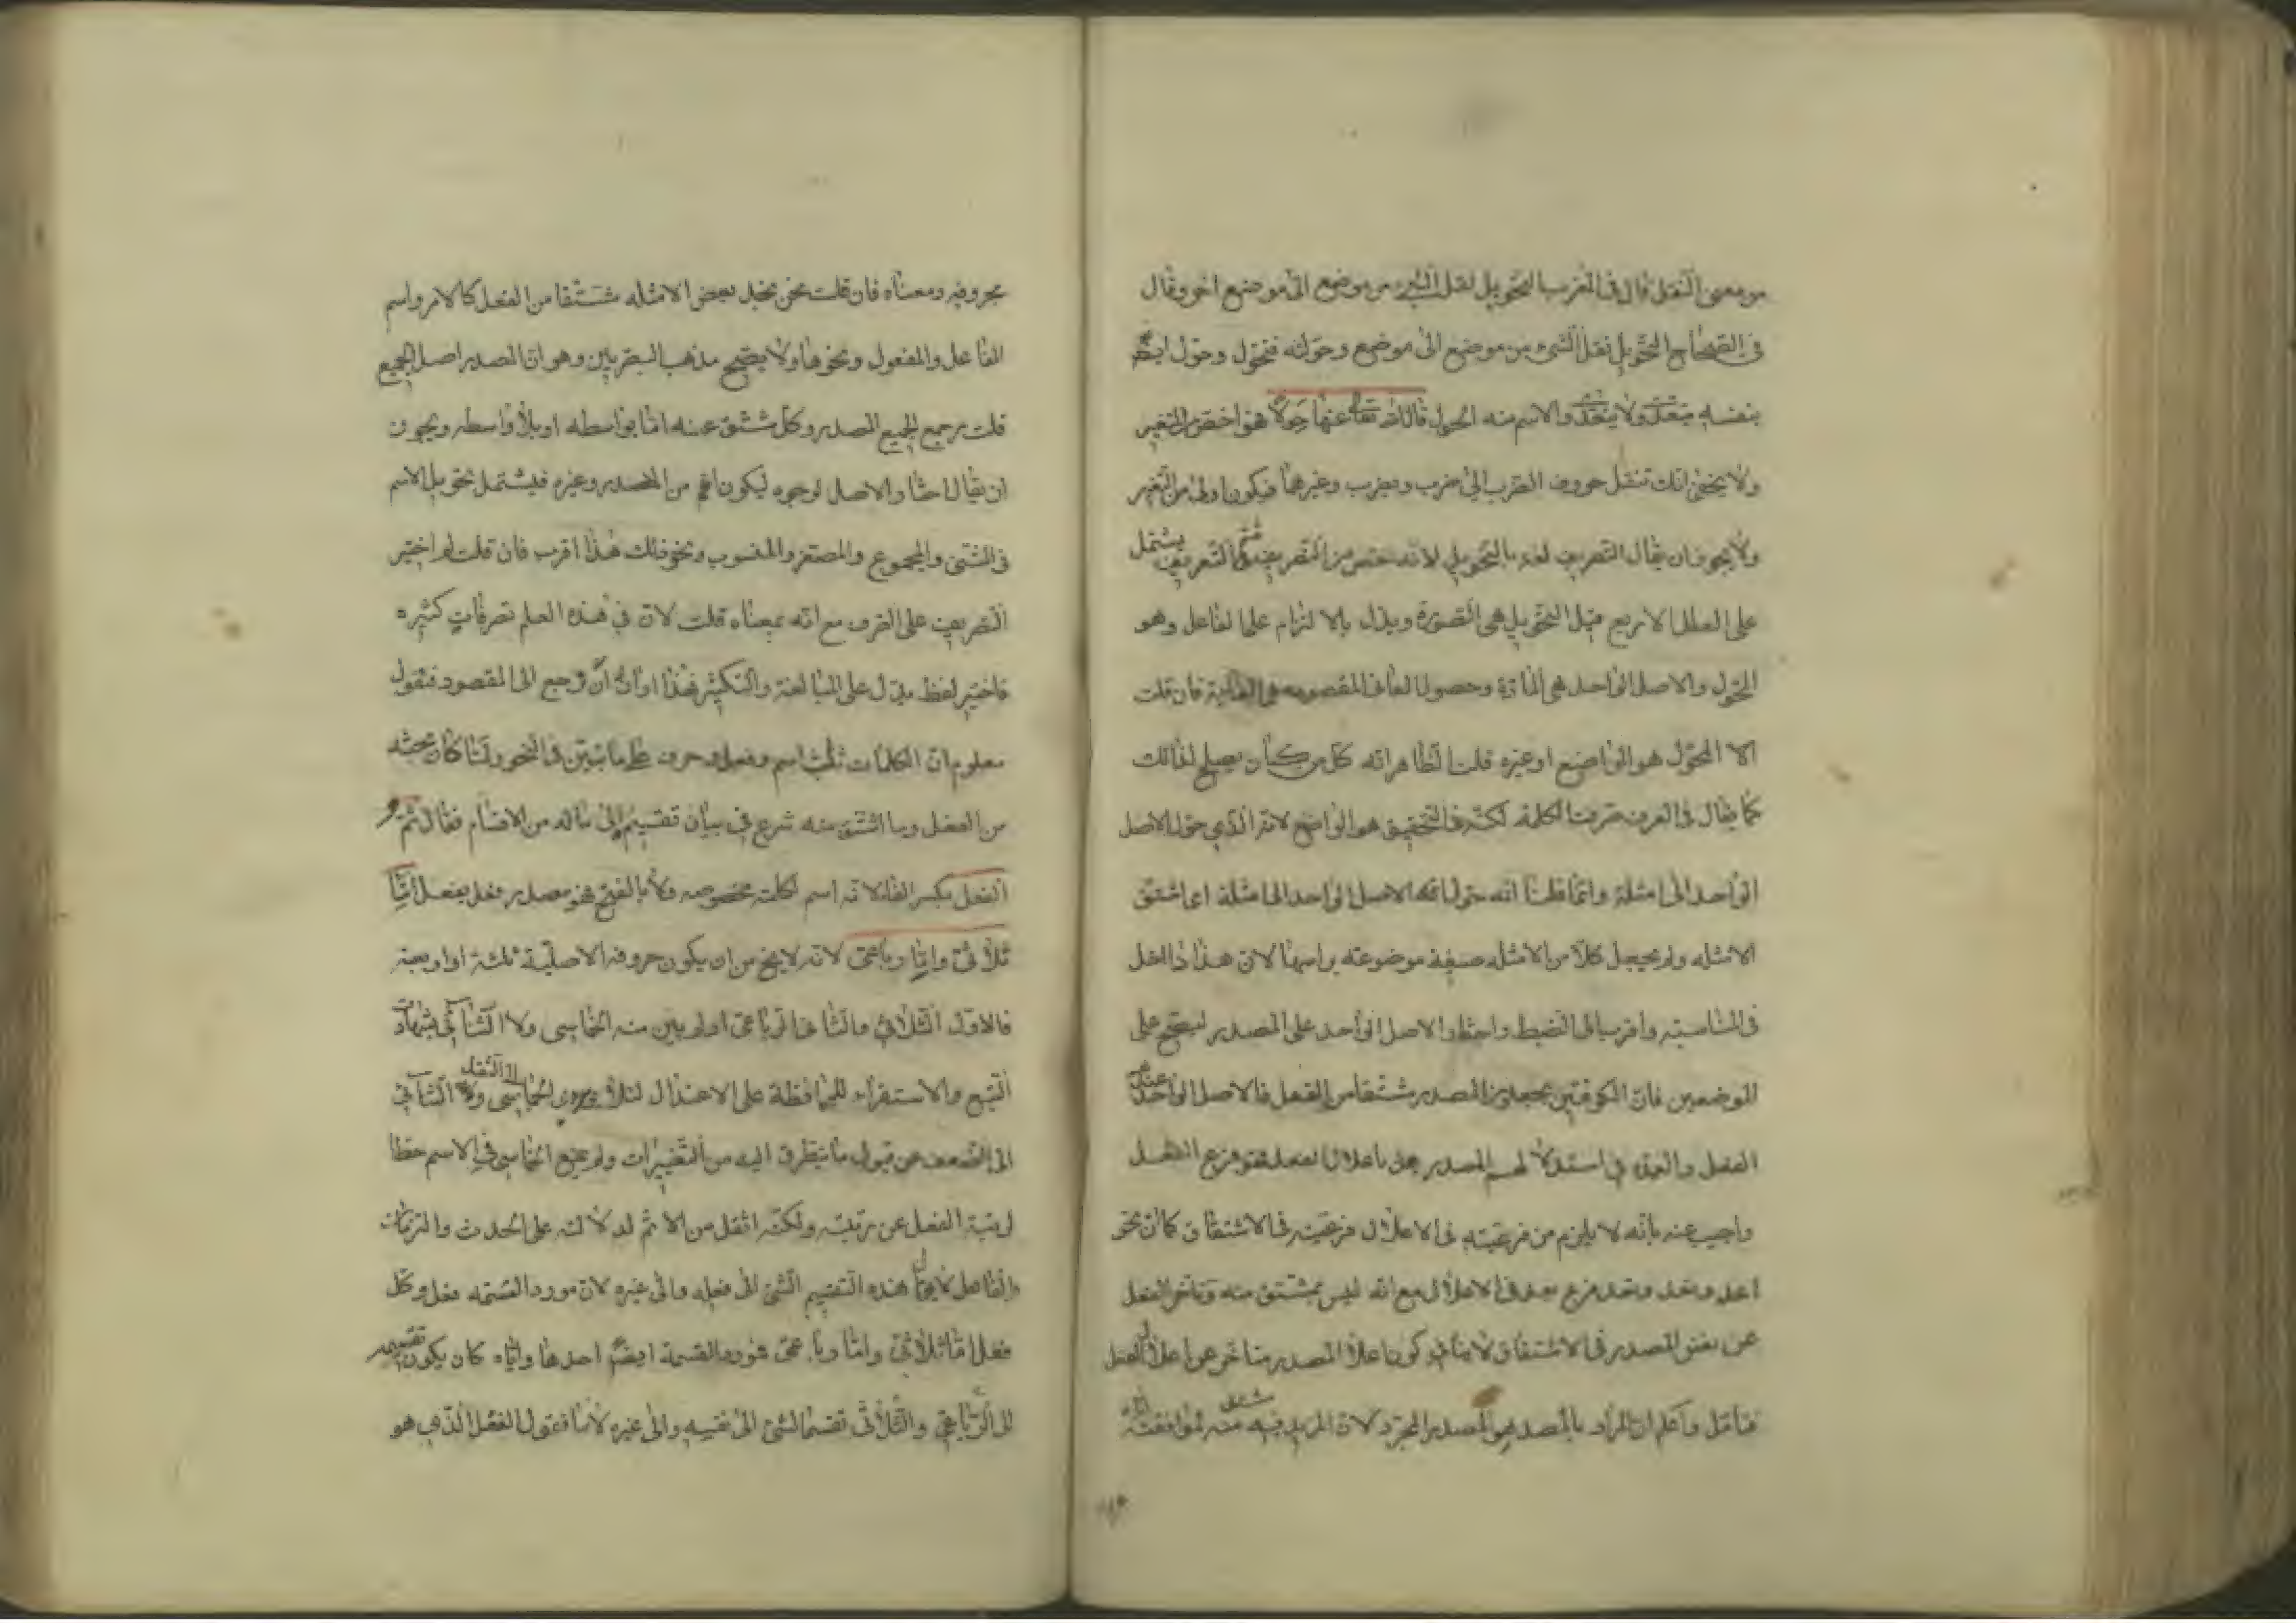 من معنى النقل قال في المغرب التحويل نقل الشيء من موضع الى موضع اخر وقال
في الصحاح التحويل نقل الشيء من موضع الى موضع وحولته فتحول وحول ايضً
بنفسه يتعدّى ولا يتعدّى والاسم منه الحول قال الله تعا عنها حولًا هو اخص من التغير
ولا يخفى انك تنقل حروف الضرب الى ضرب ويضرب وغيرهما فيكون اولى من التغير
ولا يجوز ان يقال التصريف لغة بالتحويل لانه اخص من التصريف ثم التعريف يشتمل
على العلل الاربع قيل التحويل هي الصورة ويدل بالالتزام على الفاعل وهو
المحوّل والاصل الواحد هي المادّة وحصول المعاني المقصوده هي الغاية فان قلت
الا المحوّل هو الواضع او غيره قلت الظاهر انه كل من يصلح لذالك
كما يقال في العرف صرفت الكلمة لكنه في التحقيق هو الواضع لانه الذي حوّل الاصل
الواحد الى امثلة وانما قلنا انه حوّل الاصل الواحد الى امثلة اى اشتق
الامثله ولم يجعل كلّا من الامثله صيغة موضوعة براسها لان هذا ادخل
في المناسبة واقرب الى الضبط واختار الاصل الواحد على المصدر ليصح على
الموضعين فان الكوفيّين يجعلون المصدر مشتقا من الفعل فالاصل الواحد عندهم
الفعل والعمدة في استدلالهم المصدر يعل باعلال الفعل فهو فرع الفعل
واجيب عنه بانّه لا يلزم من فرعيّته في الاعلال فرعيّته في الاشتقاق كما انّ نحو
اعد ونعد وتعد فرع يعد في الاعلال مع انه ليس بمشتق منه وتاخر الفعل
عن نفس المصدر في الاشتقاق لا ينافي كون اعلال المصدر متاخر عن اعلال الفعل
فتامّل واعلم ان المراد بالمصدر هو المصدر المجرّد لان المزيد فيه مشتق منه لموافقته ايّاه
بحروفه ومعناه فان قلت نحن نجد بعض الامثله مشتقا من الفعل كالامر واسم
الفاعل والمفعول ونحوها ولا يصح مذهب البصريين وهو ان المصدر اصل الجميع
قلت مرجع الجميع المصدر وكل مشتق عنه امّا بواسطه او بلا واسطه ويجوز
ان يقال اختار الاصل لوجوه ليكون اعم من المصدر وغيره فيشتمل تحويل الاسم
في المثنى والمجموع والمصغر والمنسوب ونحو ذلك هذا اقرب فان قلت لم اختير
التصريف على الصرف مع انّه بمعناه قلت لان في هذه العلم تصرفاتٍ كثيره
فاختير لفظ يدل على المبالغة والتكثير فهذا اوان ان نرجع الى المقصود فنقول
معلوم انّ الكلمات ثلث اسم وفعل وحرف على ما تبيّن في النحو ولمّا كان بحثه
من الفعل وما اشتق منه شرع في بيان تقسيمه الى ماله من الاقسام فقال ثم
الفعل بكسر الفاء لانّه اسم لكلمة مخصوصه ولا بالفتح فهو مصدر فعل يفعل امّا
ثلاثى وامّا رباعى لانه لا يخ من ان يكون حروفه الاصليّة ثلثة او اربعة
فالاوّل الثلاثي والثاني الرباعى اذ لم يبين منه الخماسى ولا الثنائي بشهادة
التتبع والاستقراء للمحافظة على الاعتدال لئلا يودي الخماسى الى الثقل ولا الثنائي
الى الضعف عن قبول ما يتطرق اليه من التغييرات ولم يمنع الخماسى في الاسم حطا
لرتبة الفعل عن رتبته ولكنّه اثقل من الاسم لدلالته على الحدث والزمان
والفاعل لا يقال هذه التقسيم الشئ الى فعله والى غيره لان مورد القسمه فعل وكل
فعل امّا ثلاثىّ وامّا رباعىّ فمورد القسمة ايضً احدها وايّاه كان يكون تقسيمه
الى الرّباعي والثلاثي تقسيم الشئ الى نفسه والى غيره لانّا نقول الفعل الّذي هو